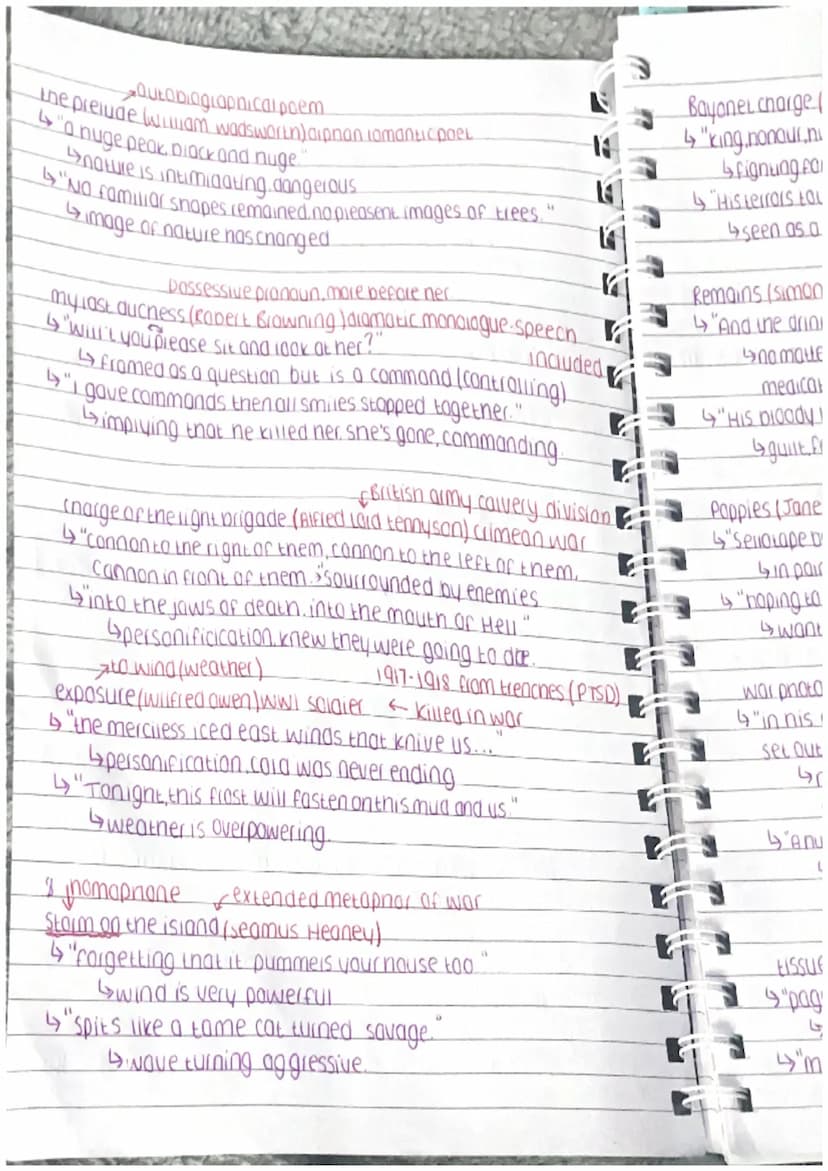 autobiographical poem
the prelude (William wadsworth) orphan romantic poet
↳ "a huge peak, black and huge."
↳ nature is intimidating, dangerous
↳ "No familiar shapes remained, no pleasent images of trees."
↳ image of nature has changed
possessive pronoun, more before her
my last duchess (Robert Browning) dramatic monologue - speech
included
↳ "Will't you please sit and look at her?"
↳ framed as a question but is a command (controlling)
↳ "I gave commands then all smiles stopped together."
↳ implying that he killed her. she's gone, commanding.
British army calvery division
charge of the light brigade (Alfred Lord tennyson) crimean war
↳ "cannon to the right of them, cannon to the left of them,
cannon in front of them." → sourrounded by enemies
↳ "into the jaws of death, into the mouth of Hell"
↳ personificication, knew they were going to die.
to wind (weather) 1917-1918 from trenches (PTSD)
exposure (wilfred owen) WWI soldier ← killed in war
↳ "the merciless iced east winds that knive us..."
↳ personification, cold was never ending
↳ "Tonight, this frost will fasten on this mud and us."
↳ weather is overpowering.
homophone extended metaphor of war
Storm on the island (Seamus Heaney)
↳ "forgetting that it pummels your house too"
↳ wind is very powerful
↳ "spits like a tame cat turned savage."
↳ wave turning aggressive.
Bayonet charge (
↳ "king, honour, hu
↳ fighting for
↳ "His terrors tou
↳ seen as a
Remains (simon
↳ "And the drin
↳ no matte
medicat
↳ "His bloody
↳ guilt, fr
Poppies (Jane
↳ "sellotape b
↳ in pai
↳ "hoping to
↳ want
war photo
↳ "in his
set out
↳
↳ "Anu
tissue
↳ "pag
↳ "m